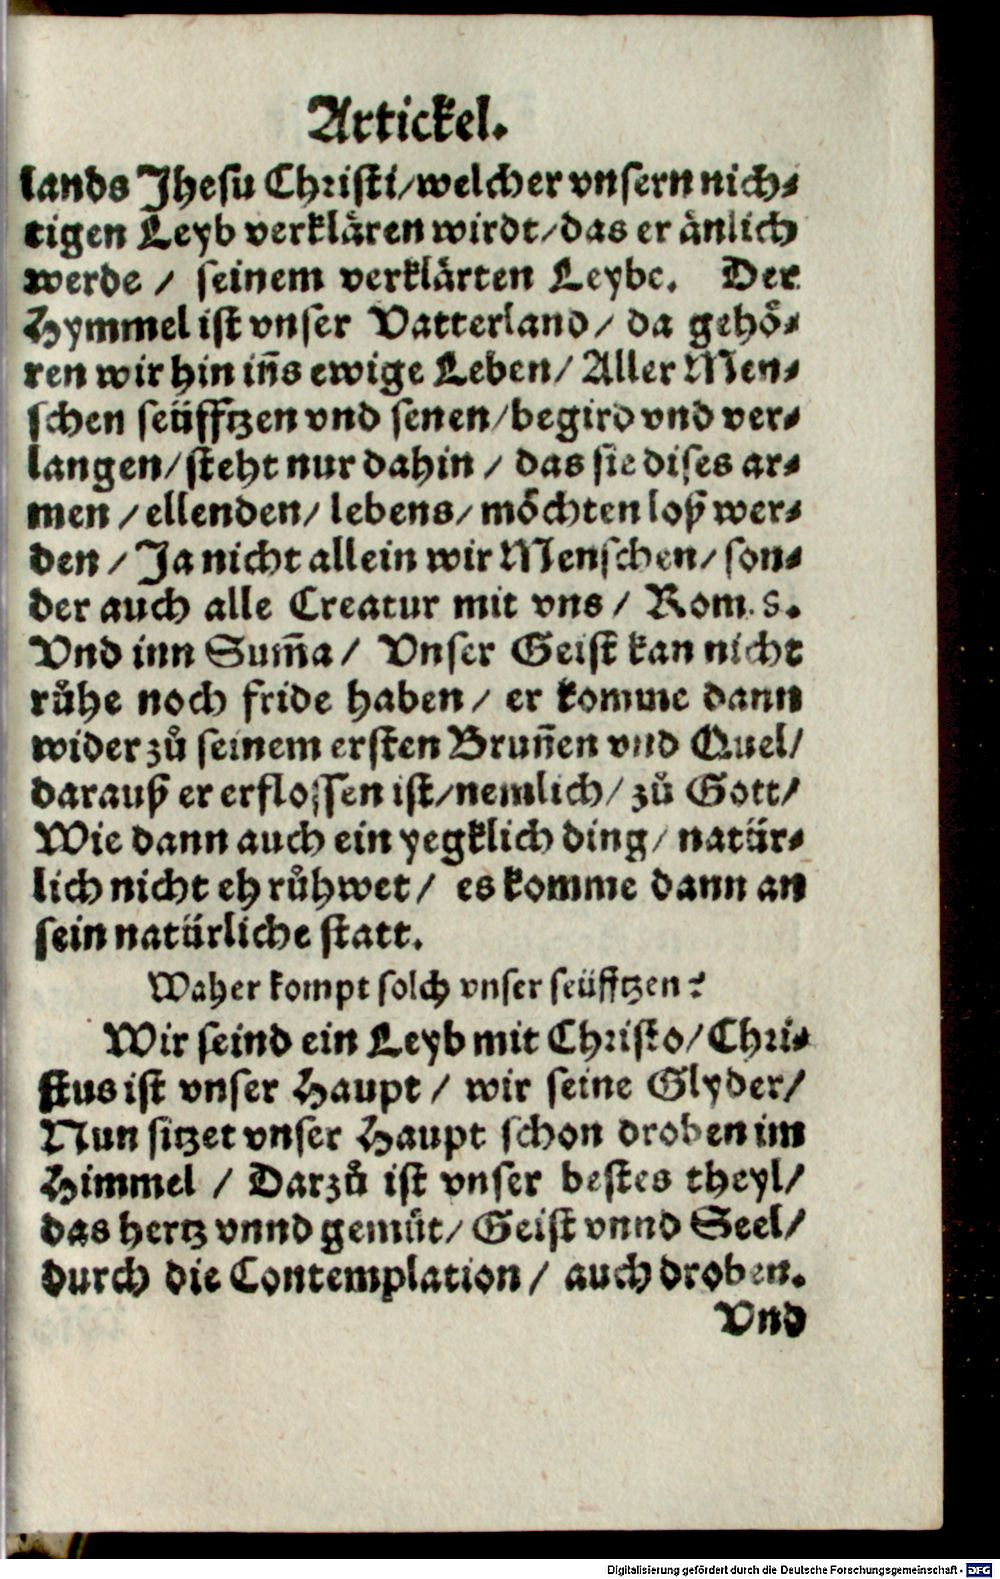 Artickel.
lands Jhesu Christi/welcher vnsern nich-
tigen Leyb verklären wirdt/das er änlich
werde / seinem verklärten Leybe. Der
Hymmel ist vnser Vatterland/ da gehö-
ren wir hin iñs ewige Leben/ Aller Men-
schen seüfftzen vnd senen/begird vnd ver-
langen/steht nur dahin / das sie dises ar-
men /ellenden/ lebens/ möchten loß wer-
den / Ja nicht allein wir Menschen/ son-
der auch alle Creatur mit vns / Rom. 8.
Vnd inn Sum̃a / Vnser Geist kan nicht
růhe noch fride haben/ er komme dann
wider zů seinem ersten Brun̄en vnd Quel/
darauß er erflossen ist/nemlich/ zů Gott/
Wie dann auch ein yegklich ding/ natür-
lich nicht eh růhwet/ es komme dann an
sein natürliche statt.
Waher kompt solch vnser seüfftzen?
Wir seind ein Leyb mit Christo/ Chri-
stus ist vnser Haupt / wir seine Glyder/
Nun sitzet vnser Haupt schon droben im
Himmel / Darzů ist vnser bestes theyl/
das hertz vnnd gemüt/ Geist vnnd Seel/
durch die Contemplation/ auch droben.
Vnd
Digitalisierung gefördert durch die Deutsche Forschungsgemeinschaft - DFG